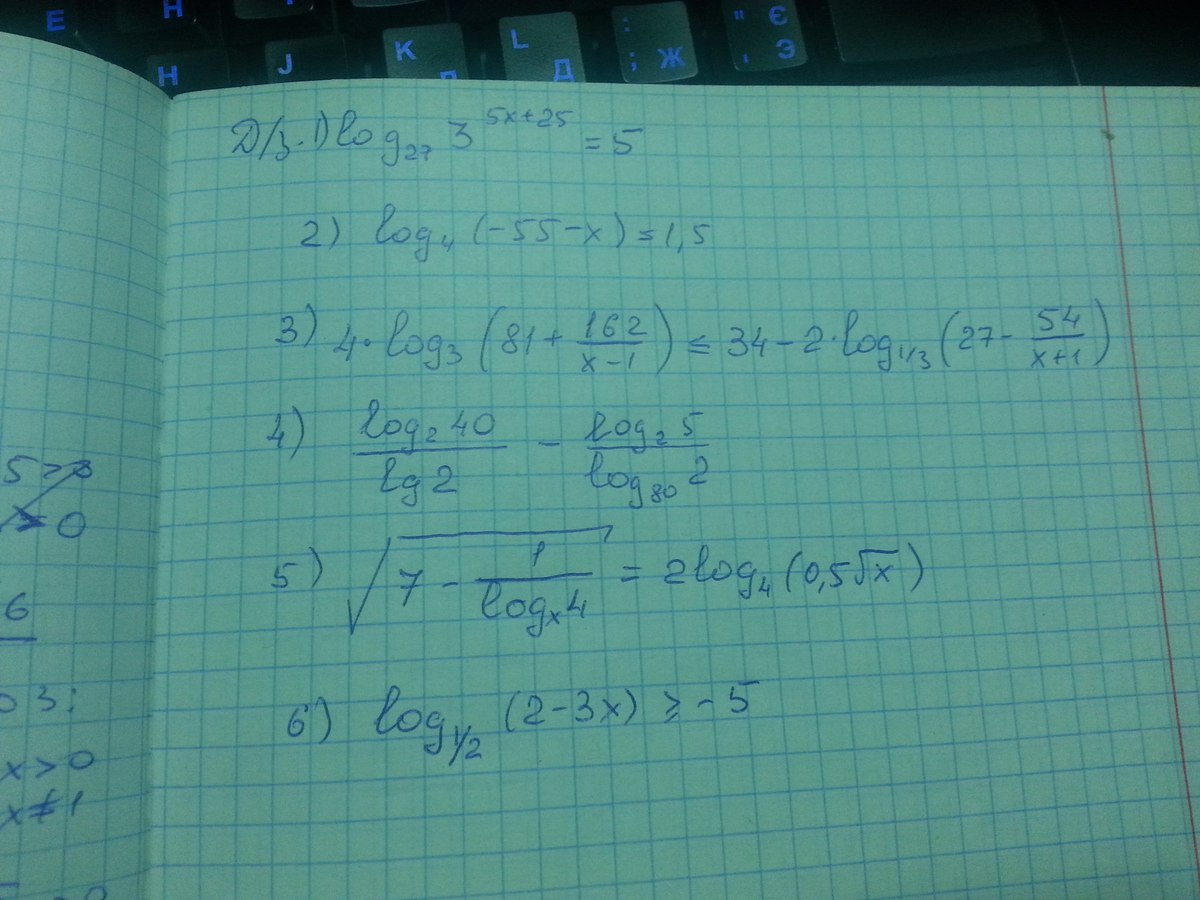 Е Н
Н J К Л L Д : ; Ж " , Є Э
Д/з. 1) log₂₇ 3^(5x+25) = 5
2) log₄ (-55-x) = 1,5
3) 4·log₃ (81 + 162/(x-1)) ≤ 34 - 2·log₁/₃ (27 - 54/(x+1))
4) log₂ 40 / lg 2 - log₂ 5 / log₈₀ 2
5) √(7 - 1/logₓ 4) = 2log₄ (0,5√x)
6) log₁/₂ (2-3x) ≥ -5
6
3:
x > 0
x ≠ 1